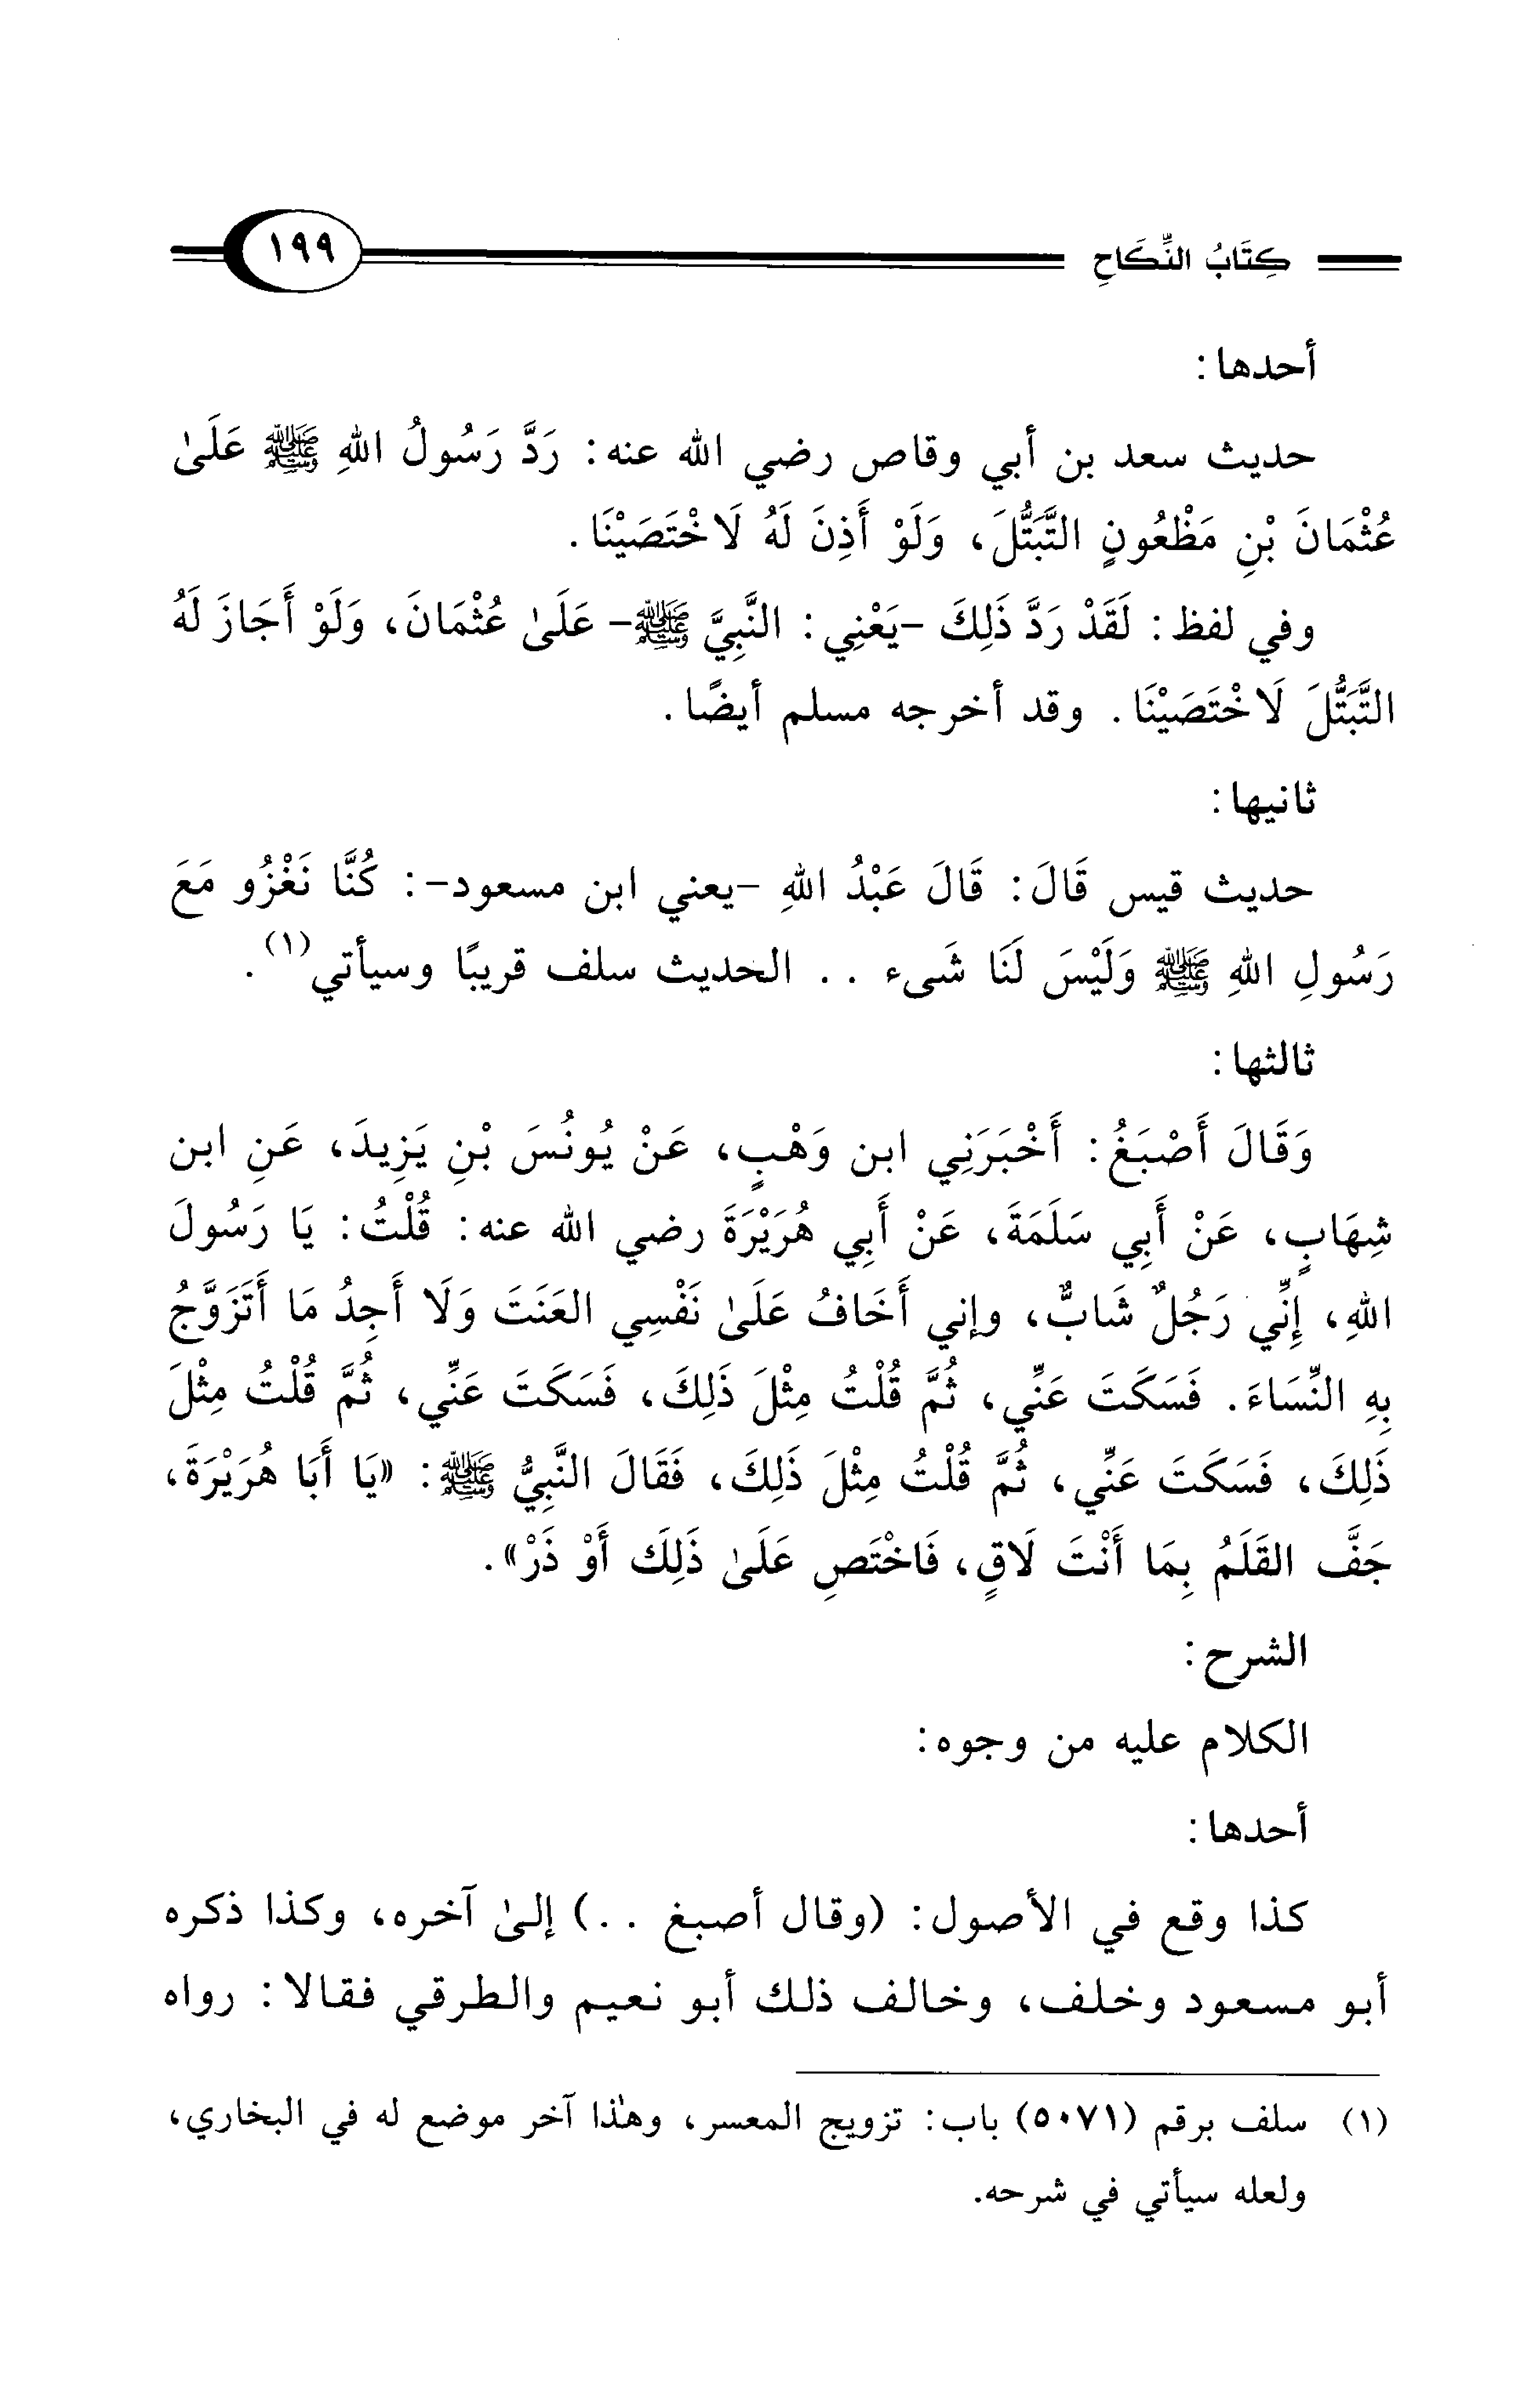 كِتَابُ النِّكَاحِ ١٩٩
أحدها:
حديث سعد بن أبي وقاص رضي الله عنه: رَدَّ رَسُولُ اللهِ ﷺ عَلَىٰ
عُثْمَانَ بْنِ مَظْعُونٍ التَّبَتُّلَ، وَلَوْ أَذِنَ لَهُ لَاخْتَصَيْنَا.
وفي لفظ: لَقَدْ رَدَّ ذَلِكَ -يَعْنِي: النَّبِيَّ ﷺ- عَلَىٰ عُثْمَانَ، وَلَوْ أَجَازَ لَهُ
التَّبَتُّلَ لَاخْتَصَيْنَا. وقد أخرجه مسلم أيضًا.
ثانيها:
حديث قيس قَالَ: قَالَ عَبْدُ اللهِ -يعني ابن مسعود-: كُنَّا نَغْزُو مَعَ
رَسُولِ اللهِ ﷺ وَلَيْسَ لَنَا شَىء .. الحديث سلف قريبًا وسيأتي(١).
ثالثها:
وَقَالَ أَصْبَغُ: أَخْبَرَنِي ابن وَهْبٍ، عَنْ يُونُسَ بْنِ يَزِيدَ، عَنِ ابن
شِهَابٍ، عَنْ أَبِي سَلَمَةَ، عَنْ أَبِي هُرَيْرَةَ رضي الله عنه: قُلْتُ: يَا رَسُولَ
اللهِ، إِنِّي رَجُلٌ شَابٌّ، وإني أَخَافُ عَلَىٰ نَفْسِي العَنَتَ وَلَا أَجِدُ مَا أَتَزَوَّجُ
بِهِ النِّسَاءَ. فَسَكَتَ عَنِّي، ثُمَّ قُلْتُ مِثْلَ ذَلِكَ، فَسَكَتَ عَنِّي، ثُمَّ قُلْتُ مِثْلَ
ذَلِكَ، فَسَكَتَ عَنِّي، ثُمَّ قُلْتُ مِثْلَ ذَلِكَ، فَقَالَ النَّبِيُّ ﷺ: «يَا أَبَا هُرَيْرَةَ،
جَفَّ القَلَمُ بِمَا أَنْتَ لَاقٍ، فَاخْتَصِ عَلَىٰ ذَلِكَ أَوْ ذَرْ».
الشرح:
الكلام عليه من وجوه:
أحدها:
كذا وقع في الأصول: (وقال أصبغ ..) إلىٰ آخره، وكذا ذكره
أبو مسعود وخلف، وخالف ذلك أبو نعيم والطرقي فقالا: رواه
(١) سلف برقم (٥٠٧١) باب: تزويج المعسر، وهٰذا آخر موضع له في البخاري،
ولعله سيأتي في شرحه.